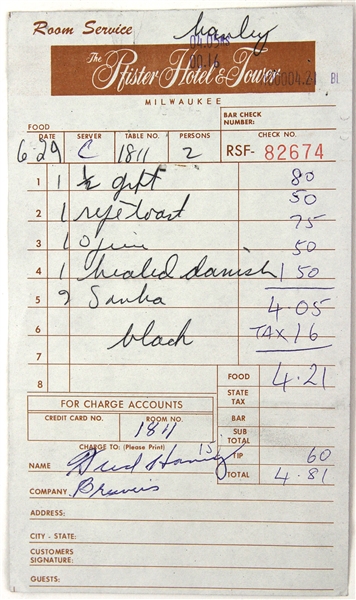 Room Service
hanley
The Pfister Hotel & Tower
MILWAUKEE
BAR CHECK NUMBER:
FOOD
DATE SERVER TABLE NO. PERSONS CHECK NO.
6-29 C 1811 2 RSF- 82674
1 1 ½ gpft 80
2 1 rye toast 50
3 1 O juice 75
4 1 heated danish 50
5 2 Sanka 1 50
6 black 4.05
7 TAX 16
8 FOOD 4.21
STATE TAX
FOR CHARGE ACCOUNTS
CREDIT CARD NO. ROOM NO.
1811
BAR
SUB TOTAL
CHARGE TO: (Please Print)
NAME Fred Haney TIP 60
TOTAL 4.81
COMPANY Braves
ADDRESS:
CITY - STATE:
CUSTOMERS SIGNATURE:
GUESTS: